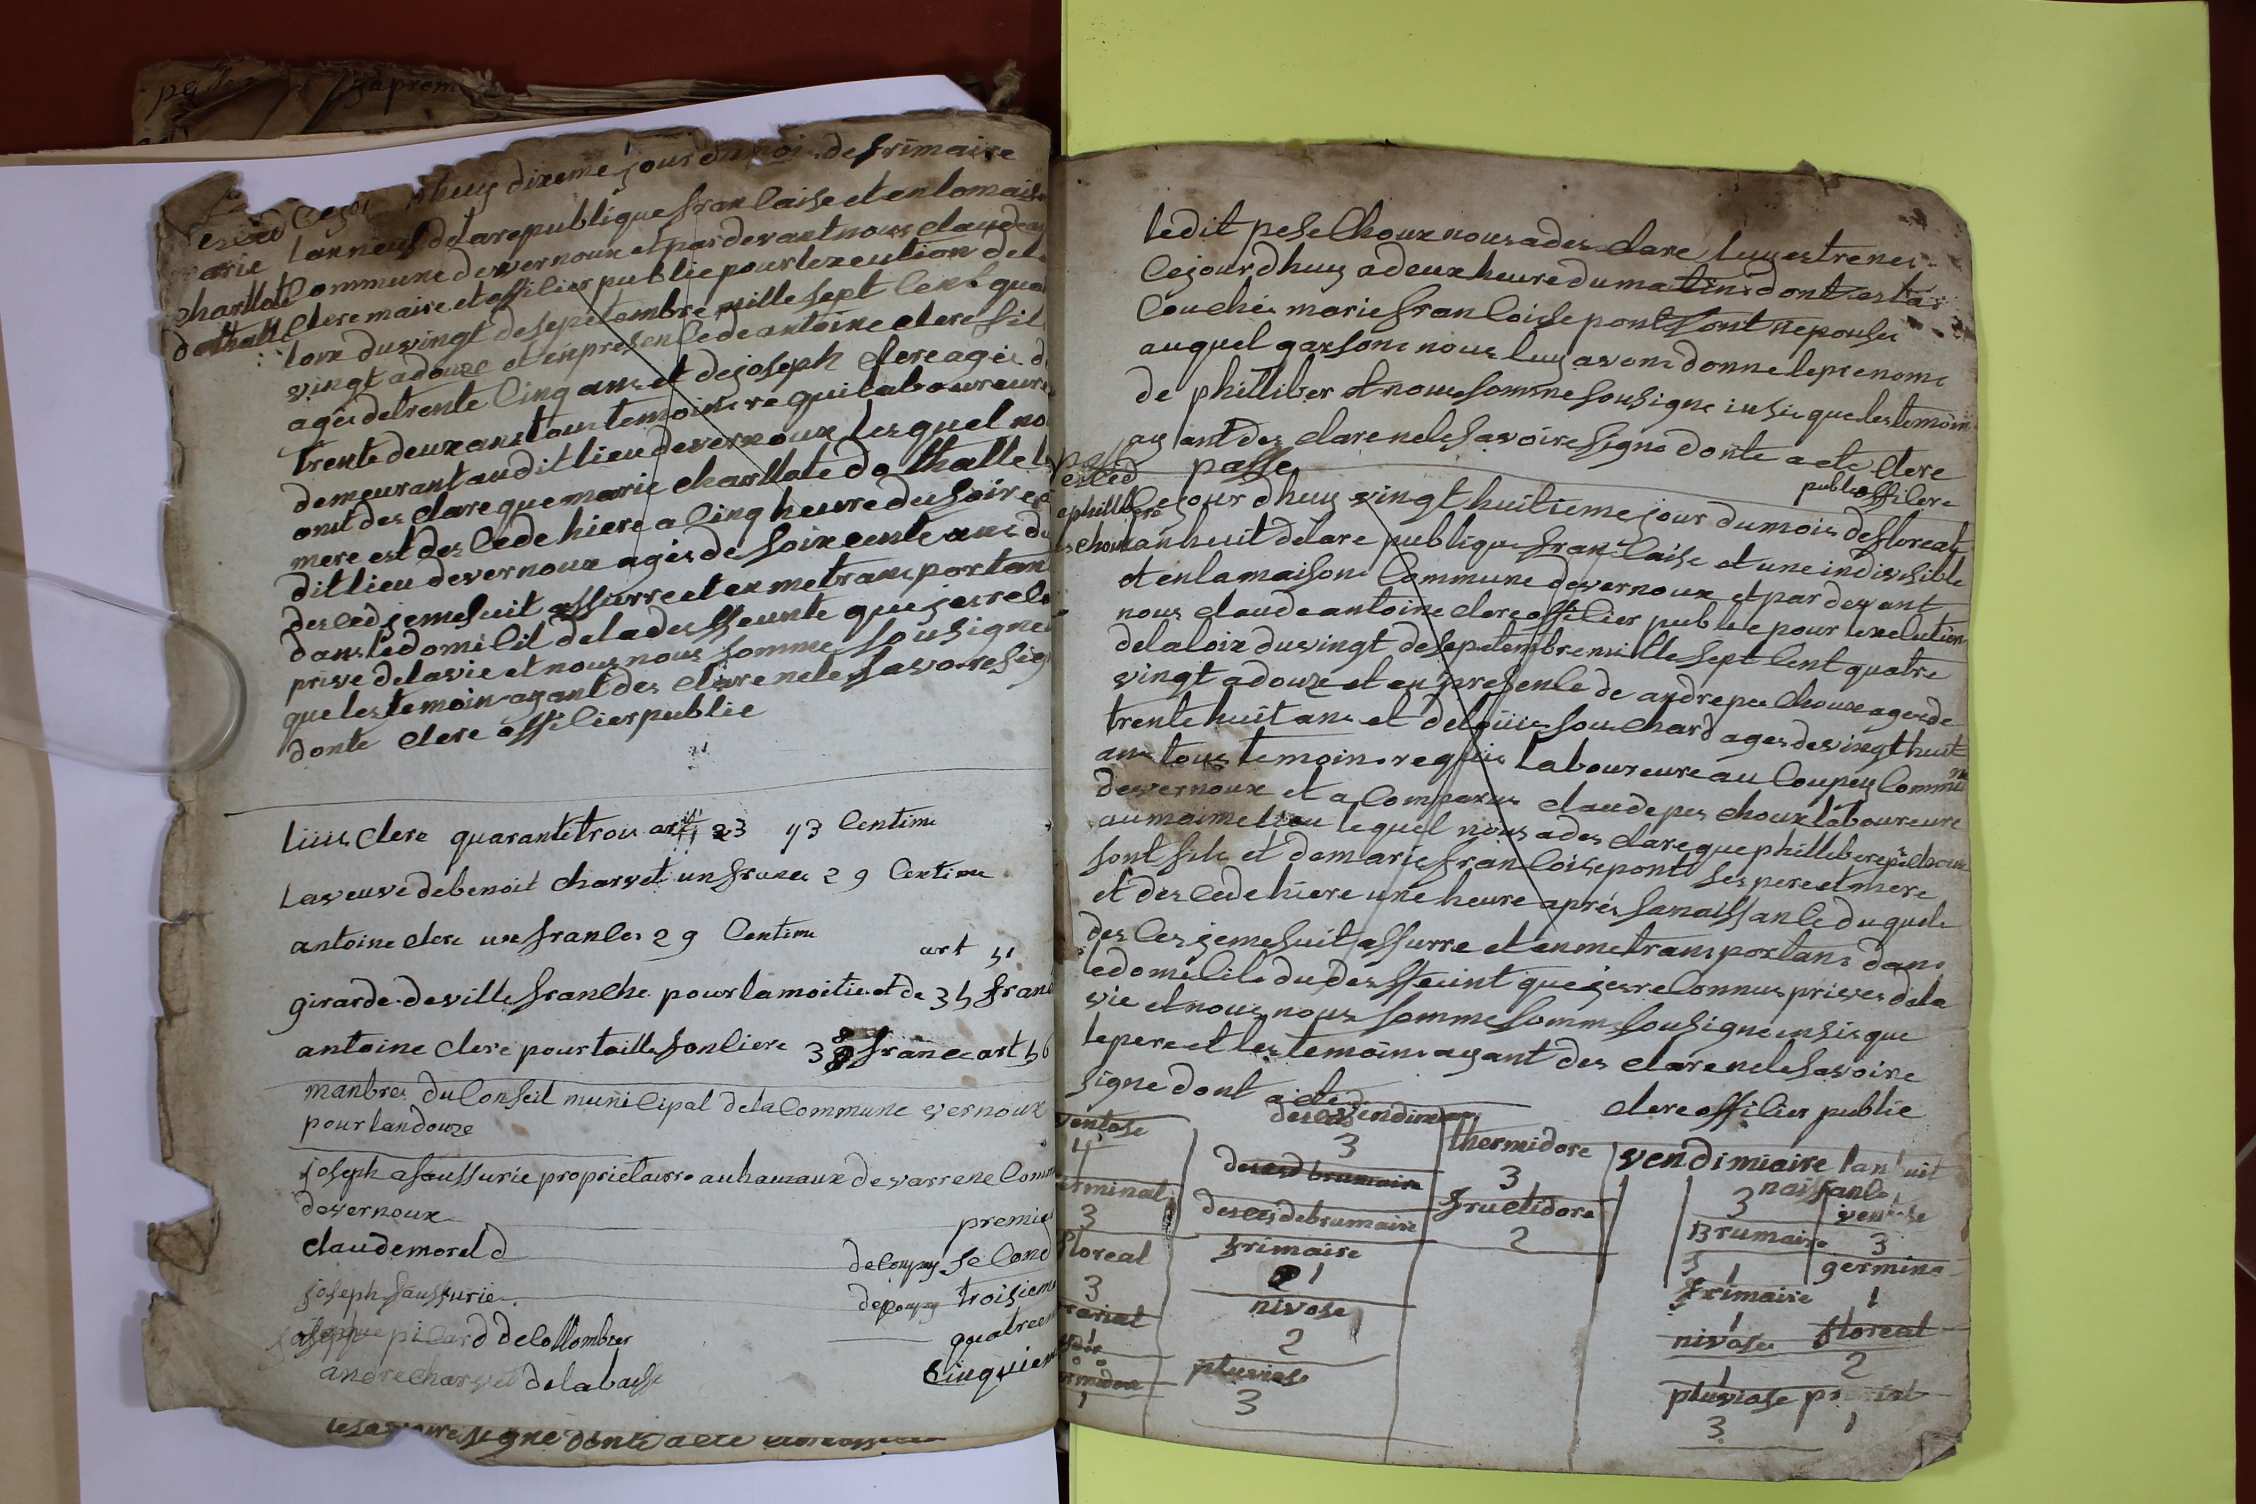 huy dixeme jour du moi de frimaire
lanneuf delarepublique franlaise et enlamaison
Commune devernoux et pardevant nous claude an
clere maire et offilier publie pour lexeution dela
loix duvingt desepetembre mille sept lent quat
vingt adouze et enpresenlede antoine clere fils
agés detrente linq ans et de joseph clere agés d
trente deux ans tous temoins requi laboureure
demeurant audit lieu devernoux lesquel no
ont des clare que marie charllote dothalle l
mere est des lede hiere a linq heure du soire
dit lieu devernoux agés de soixente ans du
desled jemesuit assurre et en metrans portant
dans ledomilil dela desffeunte que jesrelo
prive delavie et nous nous somme sousigne
que les temoin ayant des clare nele savoire sig
donte clere offilier publie
desced
marie
charllote
dothalle
luis clere quarante trois art 23 43 lentime
laveuve debenoit charvet un franc 29 lentime
antoine clere un franles 29 lentime
art 51
girarde deville franlhe pour lamoitie et de 35 franc
antoine clere pour taille fonliere 38 franc art 56
manbres du Conseil munilipal dela Commune vernoux
pour landouze
joseph asaussurie proprietairre auhamaux devarrene Comm
devernoux premier
claude moreld deloupuy selond
joseph saussurie deloupuy troisieme
joseph pilard delollombier quatreem
andre charvet delabasse sinquiem
ledit peselhoux nous a des clare luy estrenes
lejourdhuy adeux heure dumatin dont estas
louché marie franloise pont sont nepouse
auquel garson nous luy avons donne leprenome
de philliber et nous somme sousigne insie que les temoin
ayant des clare nele savoire signe donte acte clere
passe publie offilere
desled
philliber
pes choux
lejour dhuy vingt huitieme jour dumois defloreal
lanhuit delare publique franlaise et une indivisible
et enlamaison Commune devernoux et pardevant
nous claude antoine clere offilier publie pour lexelution
delaloix duvingt desepetembre mille sept lent quatre
vingt adouze et en presenle de andre pes lhoux ages de
trente huit ans et delouis fouchard ages devingt huit
ans tous temoins requis laboureure au loupuy Commune
devernoux et a lomparus claude pes choux laboureure
aumaime lieu lequel nous a des clare que phillebere pes choux
sont fils et de marie franloise pont ses pere et mere
et des lede hiere une heure aprés sanaissanle duquele
des les jemesuit assurre et en metrans portans dans
ledomilile dudesffeunt que jesrelonnus prives dela
vie et nous nous somme somme sousigne insis que
le pere et les temoins ayant des clare nele savoire
signe dont acte
clere offilier publie
ventose
4
germinal
3
floreal
3
rarial
1
desces vendimere
3
desces brumaire
desces debrumaire
frimaire
1
nivose
2
pluviose
3
thermidore
3
fructidore
2
vendimiaire lanhuit
naissanle
3
brumaire
3
frimaire
1
nivose
1
pluviose
3
ventose
3
germina
1
floreal
2
prerial
1